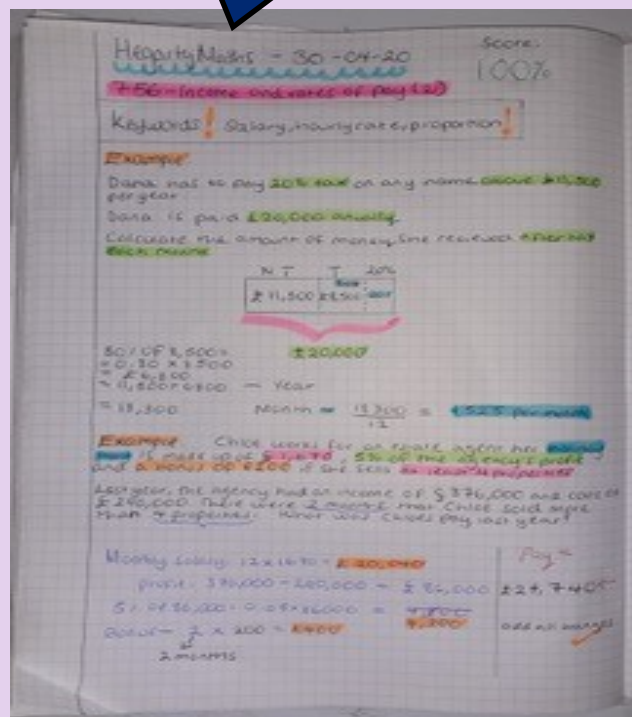 HegartyMaths - 30-04-20
Score:
100%
756-Income and rates of pay (2)
Keywords! Salary, hourly rate, proportion!
Example
Dana has to pay 20% tax on any above £11,500
per year
Dana is paid £20,000 annually
Calculate the amount of money she after tax
each month
N T T 20%
£11,500 £8,500
£20,000
80% of 8,500 =
= 0.80 × 8500
= £6,800
= 11,500 + 6800 — Year
= 18,300 Month = 18300 / 12 = £1525 per month
Example Chloe works for an agent her
is made up of £1,670, 5% of the agency's profit
and a bonus of £200 if she sells properties
Last year, the agency had an income of £376,000 and costs of
£290,000 There were 2 months that Chloe sold more
than 4 properties. What was Chloe's pay last year?
Monthly salary: 12 × 1670 = £20,040
profit: 376,000 - 290,000 = £86,000
5% of 86,000 = 0.05 × 86000 =
4,300
Bonus - 2 × 200 = £400
2 months
Pay =
£24,740
add all